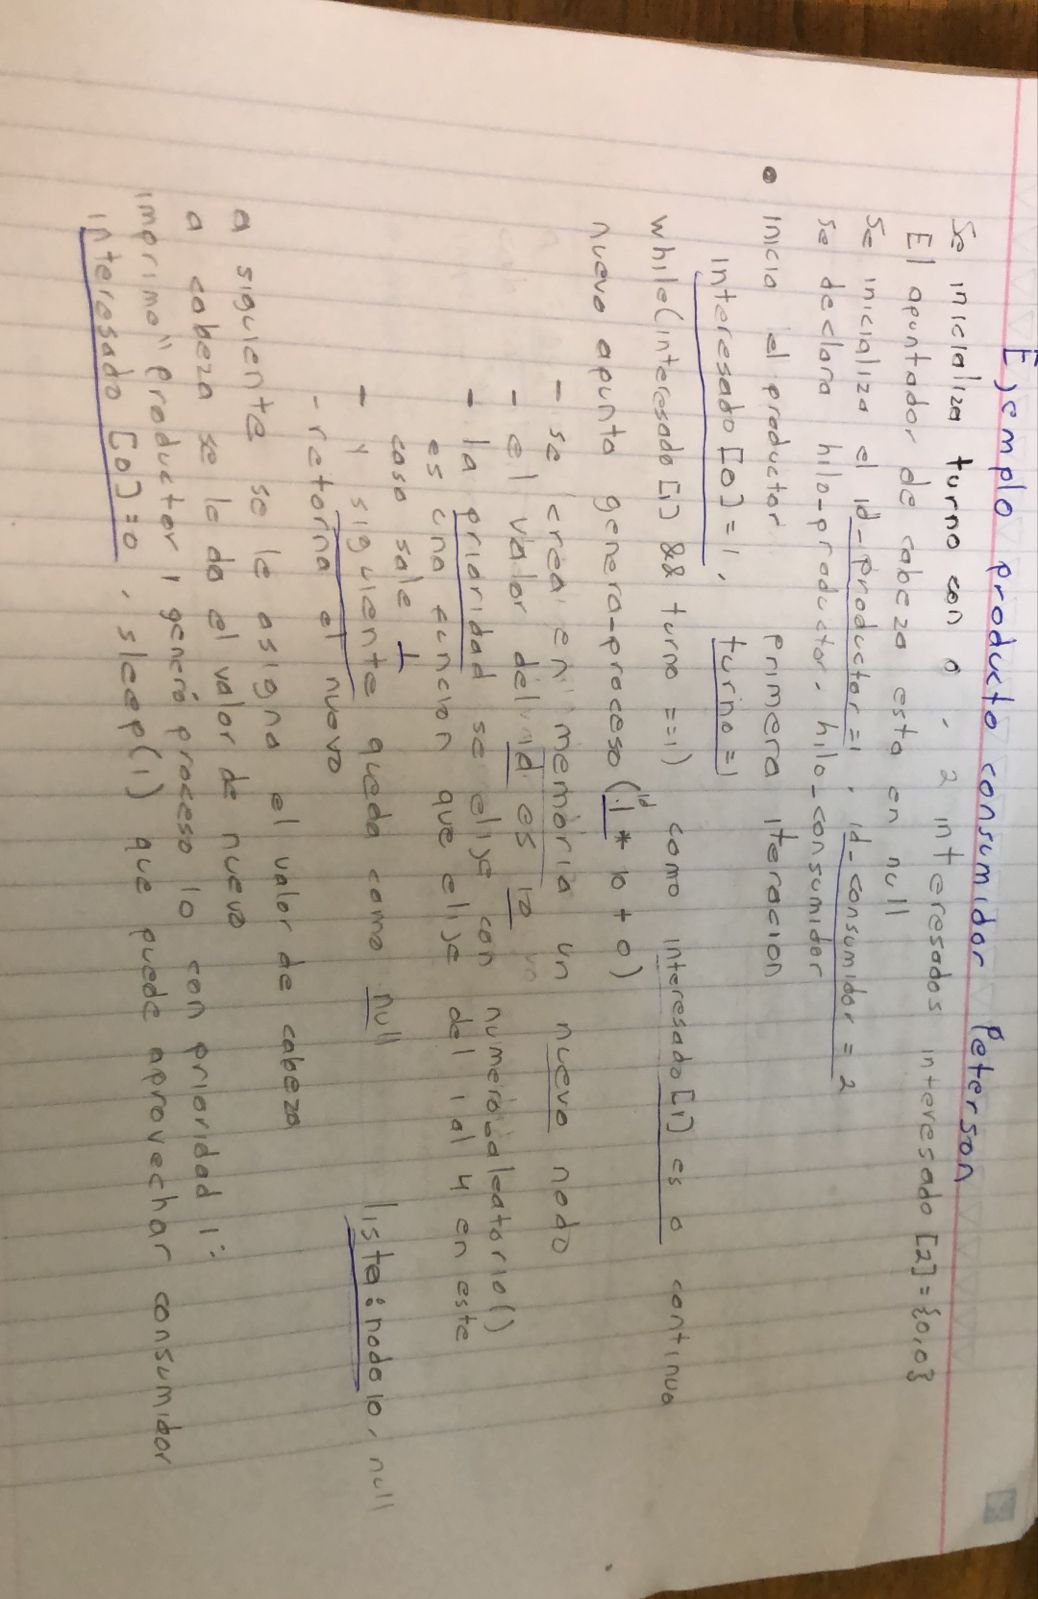 Ejemplo producto consumidor Peterson
Se inicializa turno con 0, 2 interesados interesado [2]={0,0}
El apuntador de cabeza esta en null
Se inicializa el id-productor=1, id-consumidor = 2
se declara hilo-productor, hilo-consumidor
• inicia el productor primera iteracion
interesado[0]=1, turno=1
while(interesado[1] && turno ==1) como interesado[1] es 0 continua
nuevo apunta genera-proceso(1*10+0)
id
- se crea en memoria un nuevo nodo
- el valor del id es 10
- la prioridad se elije con numero_aleatorio()
es una funcion que elije del 1 al 4 en este
caso sale 1
- y siguiente queda como null
- retorna el nuevo
lista: nodo10, null
a siguiente se le asigna el valor de cabeza
a cabeza se le da el valor de nuevo
imprime "productor 1 generó proceso 10 con prioridad 1"
interesado [0]=0, sleep(1) que puede aprovechar consumidor